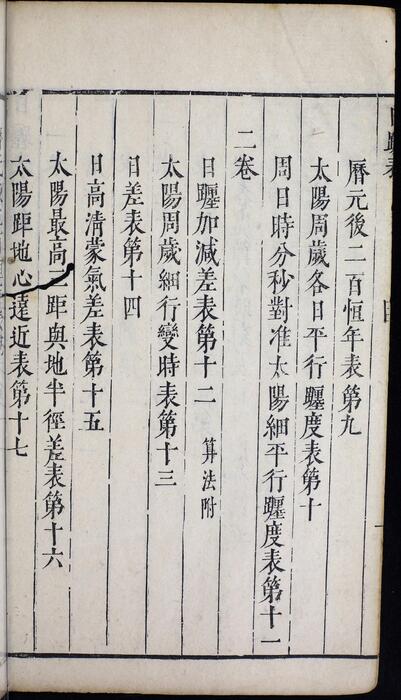 曆元後二百恒年表第九
太陽周歲各日平行躔度表第十
周日時分秒對准太陽細平行躔度表第十一
二卷
日躔加減差表第十二 算法附
太陽周歲細行變時表第十三
日差表第十四
日高清蒙氣差表第十五
太陽最高三距與地半徑差表第十六
太陽距地心遠近表第十七